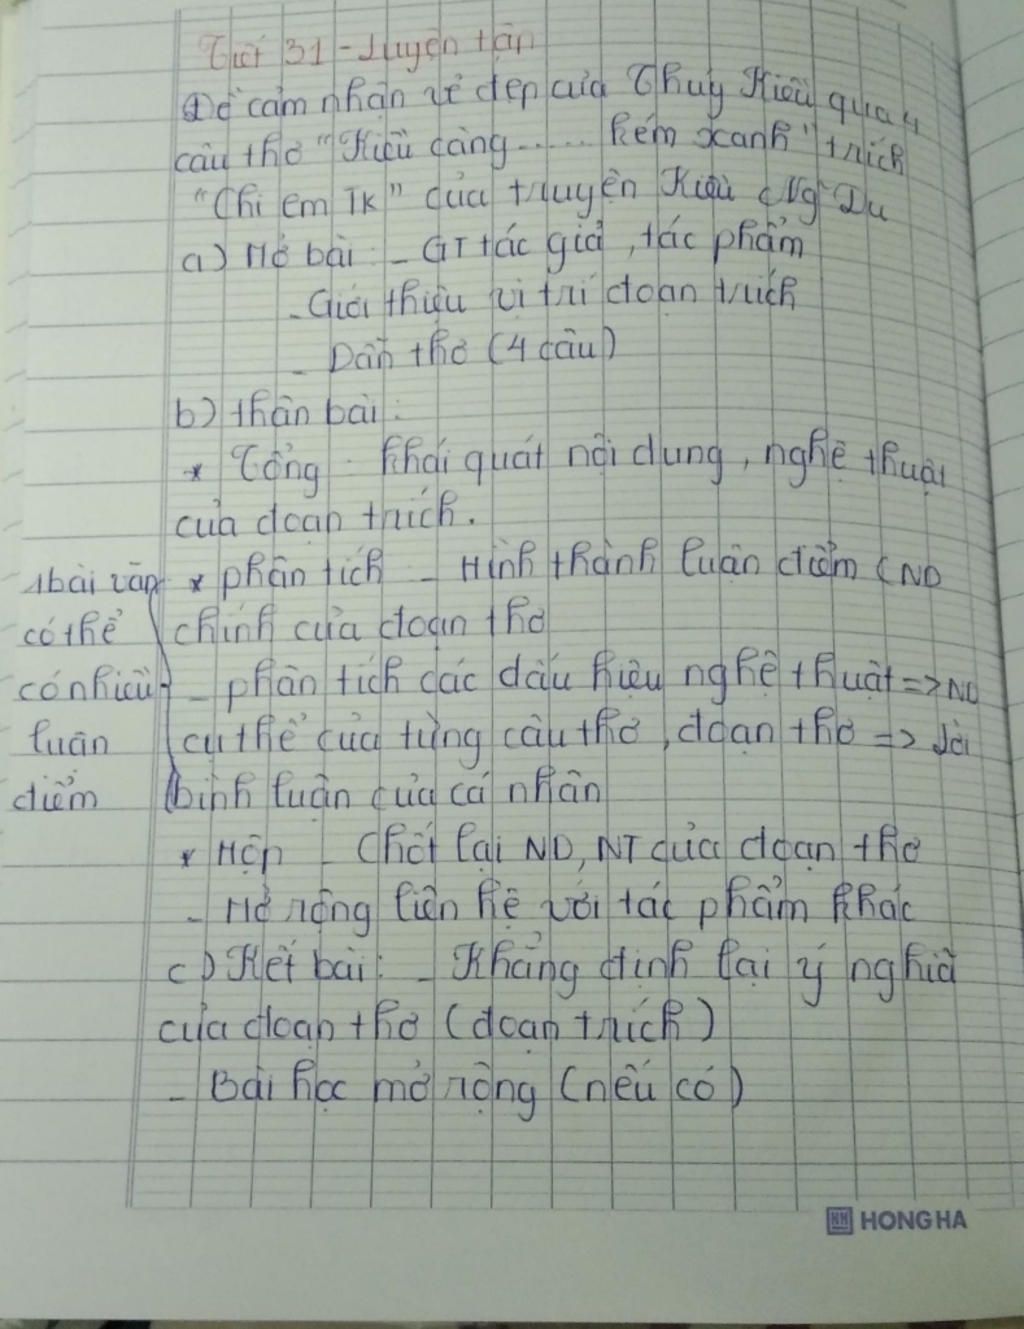 Tiết 31 - Luyện tập
Đề cảm nhận vẻ đẹp của Thuý Kiều qua 4
câu thơ "Kiều càng ..... kém xanh" trích
"Chị em TK" của truyện Kiều Ng Du
a) Mở bài - GT tác giả, tác phẩm
- Giới thiệu vị trí đoạn trích
- Dẫn thơ (4 câu)
b) thân bài:
* Tổng - Khái quát nội dung, nghệ thuật
của đoạn trích.
* phân tích - Hình thành luận điểm (ND
chính của đoạn thơ
- phân tích các dấu hiệu nghệ thuật => ND
cụ thể của từng câu thơ, đoạn thơ => Lời
bình luận của cá nhân
1 bài văn
có thể
có nhiều
luận
điểm
* Hợp - Chốt lại ND, NT của đoạn thơ
- Mở rộng liên hệ với tác phẩm khác
c) Kết bài: - Khẳng định lại ý nghĩa
của đoạn thơ (đoạn trích)
- Bài học mở rộng (nếu có)
HONG HA